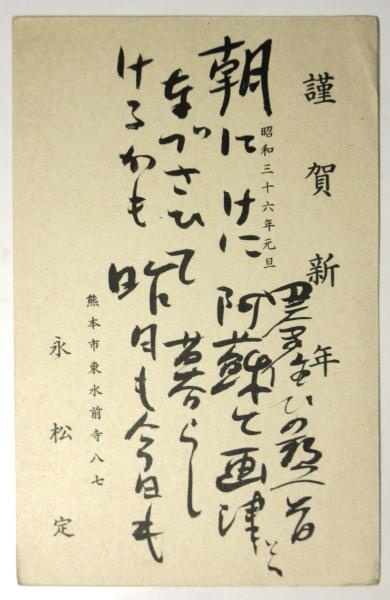 謹賀新年
昭和三十六年元旦
朝にけに阿蘇と画津と
なづさひて暮らし
けるかも昨日も今日も
熊本市東水前寺八七
永松定